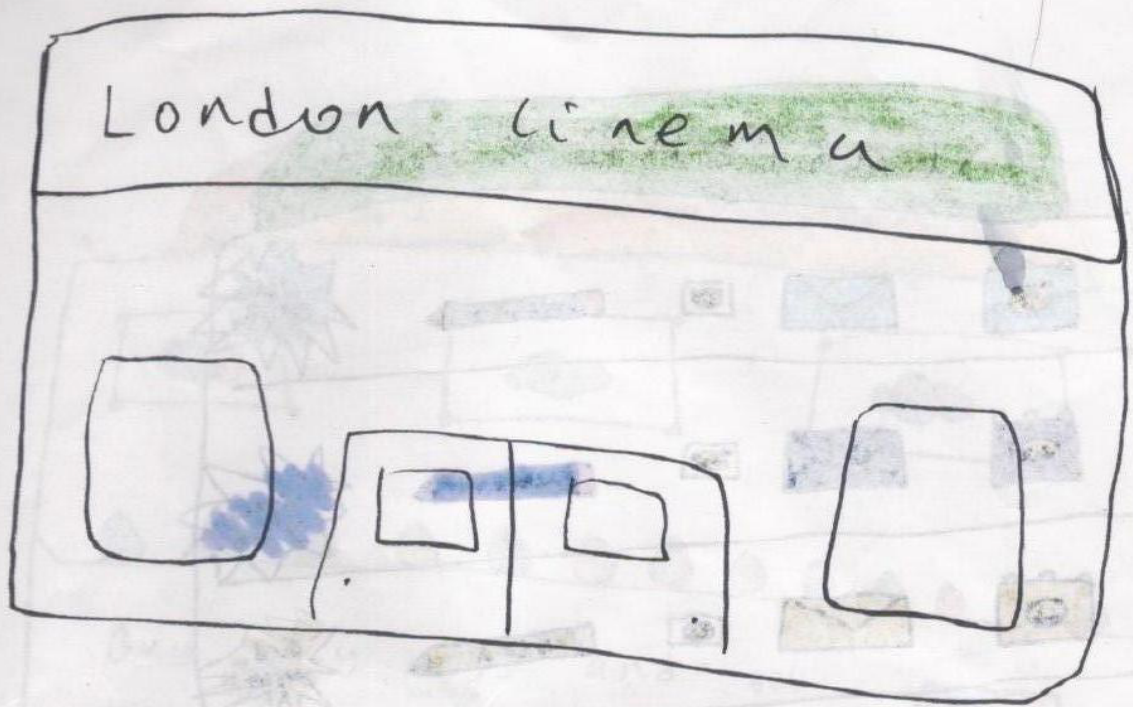 London Cinema